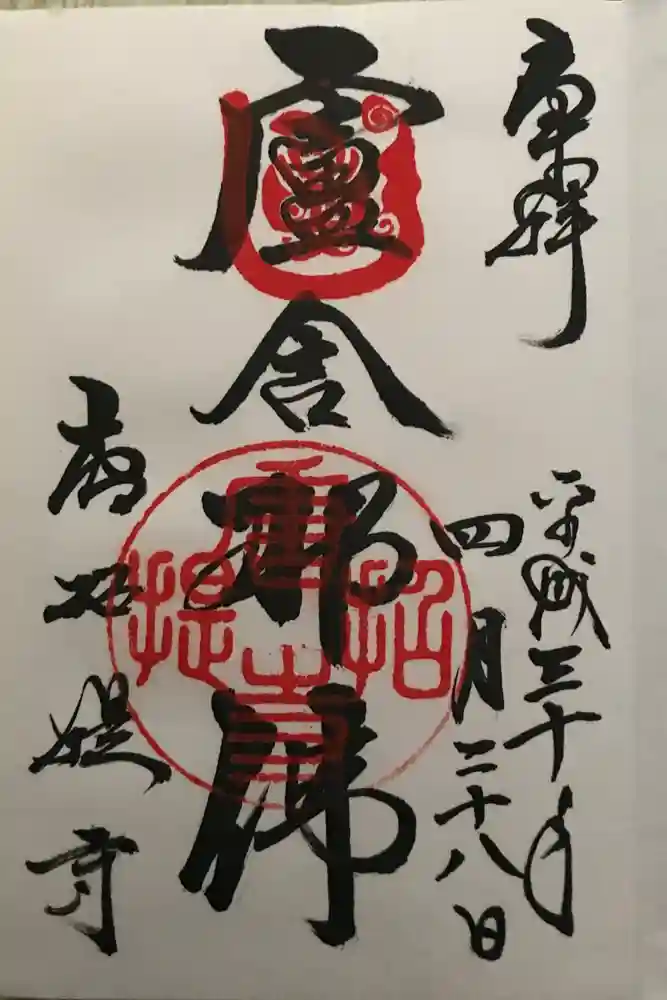 奉拝
平成三十年
四月二十八日
盧舍那佛
唐招提寺
唐招提寺